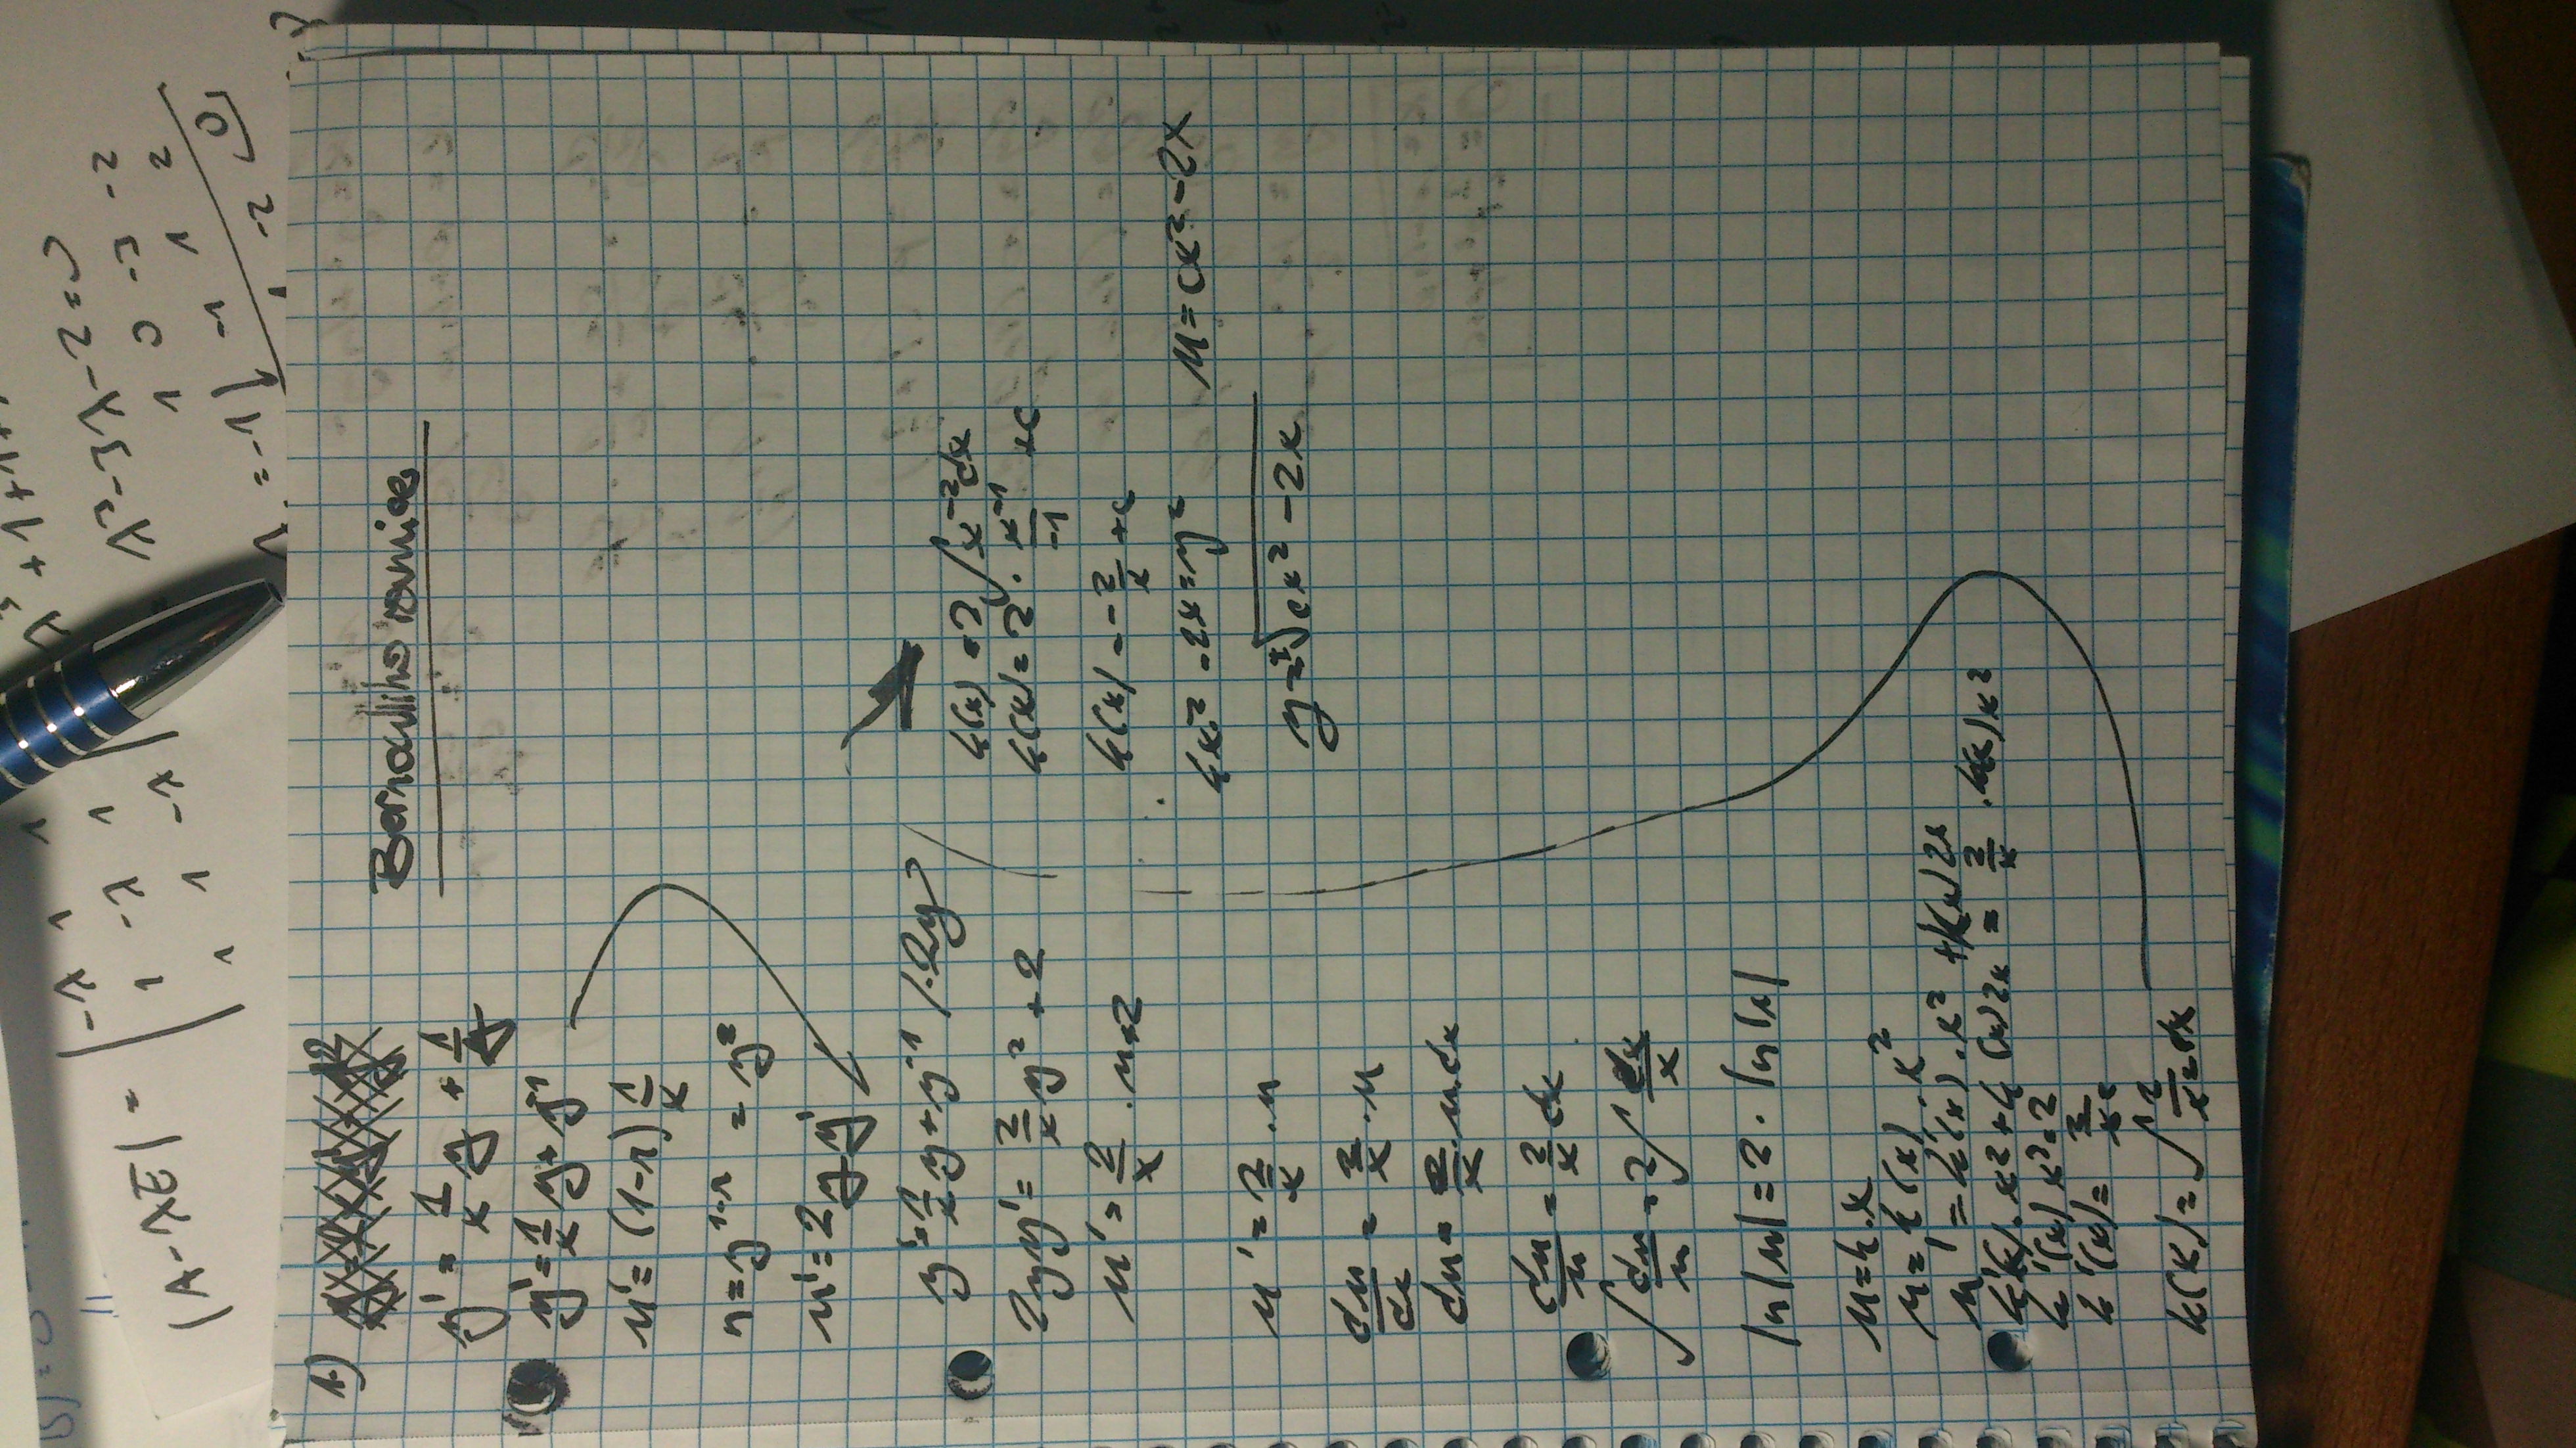 |A-λE| = | -λ 1 1
1 -λ 1
1 1 -λ |
λ³ + 1 + 1 +
λ³ - 3λ - 2 = 0
1 0 -3 -2
= -1 | -1 1 2
1 -2 0
1.)
Bernoulliho rovnice
y' = 1/x y + 1/y
y' = 1/x y + y⁻¹
u' = (1-r) 1/x
u = y¹⁻ʳ = y²
u' = 2yy'
y' = 1/x y + y⁻¹ /·2y
2yy' = 2/x y² + 2
u' = 2/x · u + 2
u' = 2/x · u
du/dx = 2/x · u
du = 2/x · u · dx
du/u = 2/x dx
∫ du/u = 2 ∫ dx/x
ln|u| = 2 · ln|x|
u = k · x
u = k(x) · x²
u' = k'(x) · x² + k(x) 2x
k'(x) · x² + k(x) 2x = 2/x · k(x) x²
k'(x) x² = 2
k'(x) = 2/x²
k(x) = ∫ 2/x² dx
k(x) = 2 ∫ x⁻² dx
k(x) = 2 · x⁻¹/-1 + c
k(x) = -2/x + c
kx² - 2x = y² u = cx² - 2x
y = ±√cx² - 2x